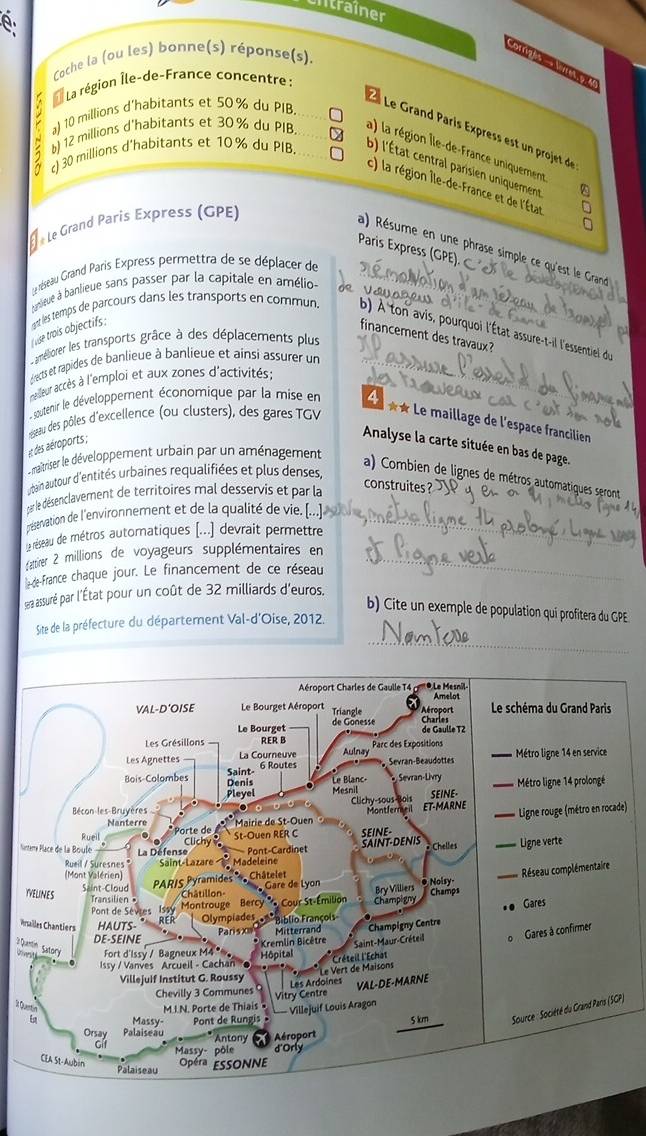 é:
entraîner
Corrigés → livret, p. 40
QUIZ-TEST
Coche la (ou les) bonne(s) réponse(s).
1 La région Île-de-France concentre :
a) 10 millions d'habitants et 50 % du PIB.
b) 12 millions d'habitants et 30 % du PIB.
c) 30 millions d'habitants et 10 % du PIB.
2 Le Grand Paris Express est un projet de :
a) la région Île-de-France uniquement.
b) l'État central parisien uniquement.
c) la région Île-de-France et de l'État.
3 ★ Le Grand Paris Express (GPE)
Le réseau Grand Paris Express permettra de se déplacer de
banlieue à banlieue sans passer par la capitale en amélio-
rant les temps de parcours dans les transports en commun.
Il vise trois objectifs :
- améliorer les transports grâce à des déplacements plus
directs et rapides de banlieue à banlieue et ainsi assurer un
meilleur accès à l'emploi et aux zones d'activités ;
- soutenir le développement économique par la mise en
réseau des pôles d'excellence (ou clusters), des gares TGV
et des aéroports ;
- maîtriser le développement urbain par un aménagement
urbain autour d'entités urbaines requalifiées et plus denses,
par le désenclavement de territoires mal desservis et par la
préservation de l'environnement et de la qualité de vie. [...]
Le réseau de métros automatiques [...] devrait permettre
d'attirer 2 millions de voyageurs supplémentaires en
Île-de-France chaque jour. Le financement de ce réseau
sera assuré par l'État pour un coût de 32 milliards d'euros.
Site de la préfecture du département Val-d'Oise, 2012.
a) Résume en une phrase simple ce qu'est le Grand
Paris Express (GPE). C'est le
rénovation d'un réseau de transport
de voyageur d'île-de France
b) À ton avis, pourquoi l'État assure-t-il l'essentiel du
financement des travaux?
Il assure l'essentiel du
des travaux car c'est son role
4 ★★ Le maillage de l'espace francilien
Analyse la carte située en bas de page.
a) Combien de lignes de métros automatiques seront
construites? Il y en a 4, métro ligne 14
métro ligne 14 prolongé, ligne rouge
et ligne verte
b) Cite un exemple de population qui profitera du GPE.
Nanterre
Aéroport Charles de Gaulle T4
Le Mesnil-
Amelot
VAL-D'OISE
Le Bourget Aéroport
Triangle
de Gonesse
Aéroport
Charles
de Gaulle T2
Le Bourget
RER B
Parc des Expositions
Les Grésillons
Les Agnettes
La Courneuve
6 Routes
Aulnay
Sevran-Beaudottes
Bois-Colombes
Saint-
Denis
Pleyel
Le Blanc-
Mesnil
Sevran-Livry
Clichy-sous-Bois
Montfermeil
SEINE-
ET-MARNE
Bécon-les-Bruyères
Nanterre
Mairie de St-Ouen
Rueil
Porte de
Clichy
St-Ouen RER C
SEINE-
SAINT-DENIS
Chelles
Nanterre Place de la Boule
La Défense
Pont-Cardinet
Rueil / Suresnes
(Mont Valérien)
Saint-Lazare
Madeleine
Pyramides
Châtelet
PARIS
Gare de Lyon
YVELINES
Saint-Cloud
Transilien
Châtillon-
Montrouge
Bercy
Cour St-Émilion
Bry Villiers
Champigny
Noisy-
Champs
Pont de Sèvres
Issy
RER
Olympiades
Biblio.François-
Mitterrand
Versailles Chantiers
HAUTS-
DE-SEINE
Paris XIII
Champigny Centre
St Quentin
Université
Satory
Kremlin Bicêtre
Saint-Maur-Créteil
Fort d'Issy / Bagneux M4
Hôpital
Créteil l'Echat
Issy / Vanves
Arcueil - Cachan
Le Vert de Maisons
Villejuif Institut G. Roussy
Les Ardoines
VAL-DE-MARNE
Chevilly 3 Communes
Vitry Centre
M.I.N. Porte de Thiais
Villejuif Louis Aragon
St Quentin
Est
Massy-
Palaiseau
Pont de Rungis
5 km
Orsay
Gif
Antony
Aéroport
d'Orly
Massy- pôle
Opéra
CEA St-Aubin
Palaiseau
ESSONNE
Le schéma du Grand Paris
Métro ligne 14 en service
Métro ligne 14 prolongé
Ligne rouge (métro en rocade)
Ligne verte
Réseau complémentaire
Gares
Gares à confirmer
Source : Société du Grand Paris (SGP)